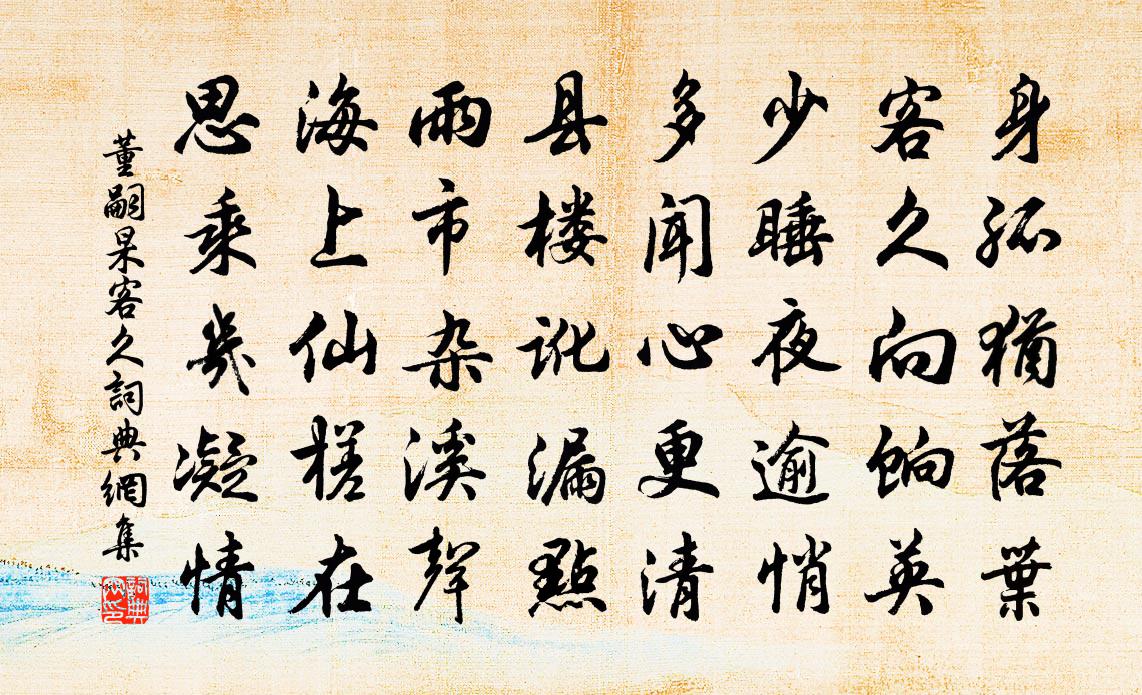 身孤犹落叶
客久向餉英
少睡夜逾悄
多闻心更清
县楼讹漏點
雨市杂溪聲
海上仙槎在
思乘幾凝情
董嗣杲客久詞典網集